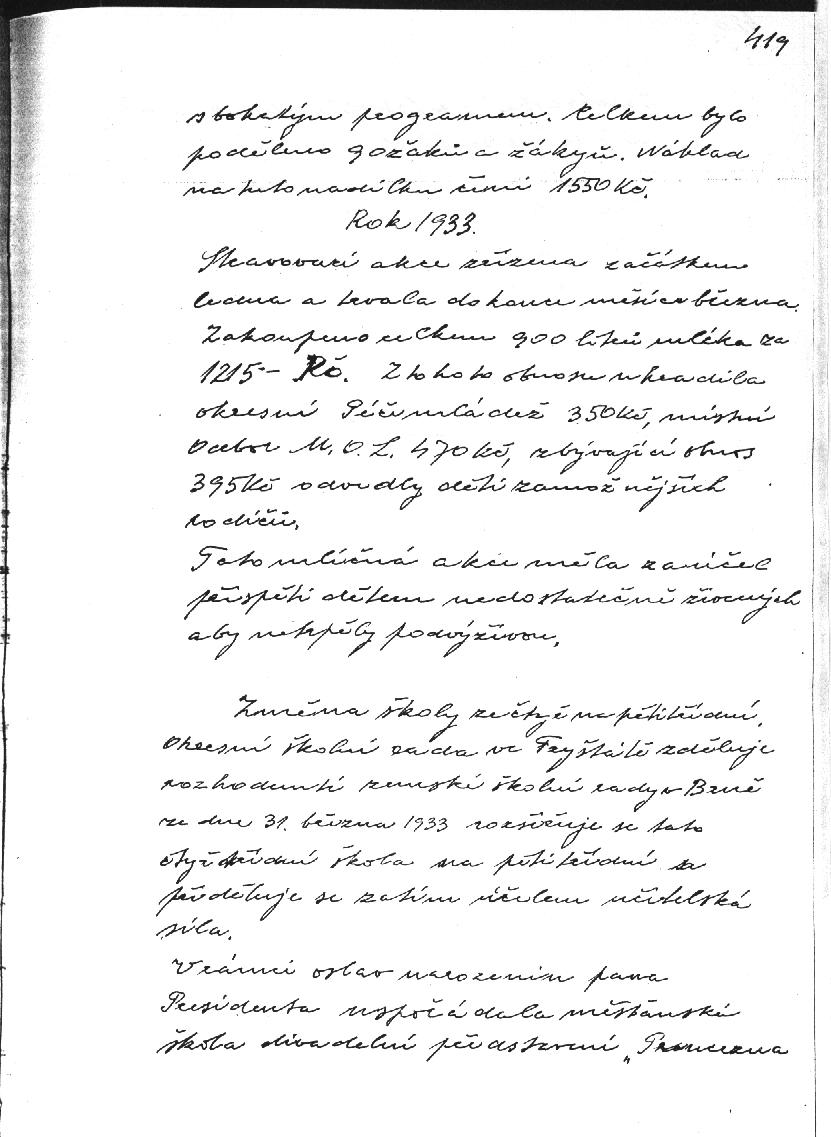 419
s bohatým programem. Celkem bylo
poděleno 90 žáků a žákyň. Náklad
na tuto nadílku činí 1550 Kč.
Rok 1933.
Stravovací akce zřízena začátkem
ledna a trvala do konce měsíce března.
Zakoupeno celkem 900 litrů mléka za
1215 – Kč. Z tohoto obnosu uhradila
okresní Péče mládež 350 Kč, místní
odbor M. O. L. 470 Kč, zbývající obnos
395 Kč odvedly děti zámožnějších
rodičů.
Tato mléčná akce měla za účel
přispěti dětem nedostatečně živených
aby netrpěly podvýživou.
Změna školy ze čtyř na pětitřídní.
Okresní školní rada ve Fryštátě zděluje
rozhodnutí zemské školní rady v Brně
ze dne 31. března 1933 rozšiřuje se tato
čtyřtřídní škola na pětitřídní a
přiděluje se zatím účelem učitelská
síla.
V rámci oslav narozenin pana
Presidenta uspořádala měšťanská
škola divadelní představení „Princezna